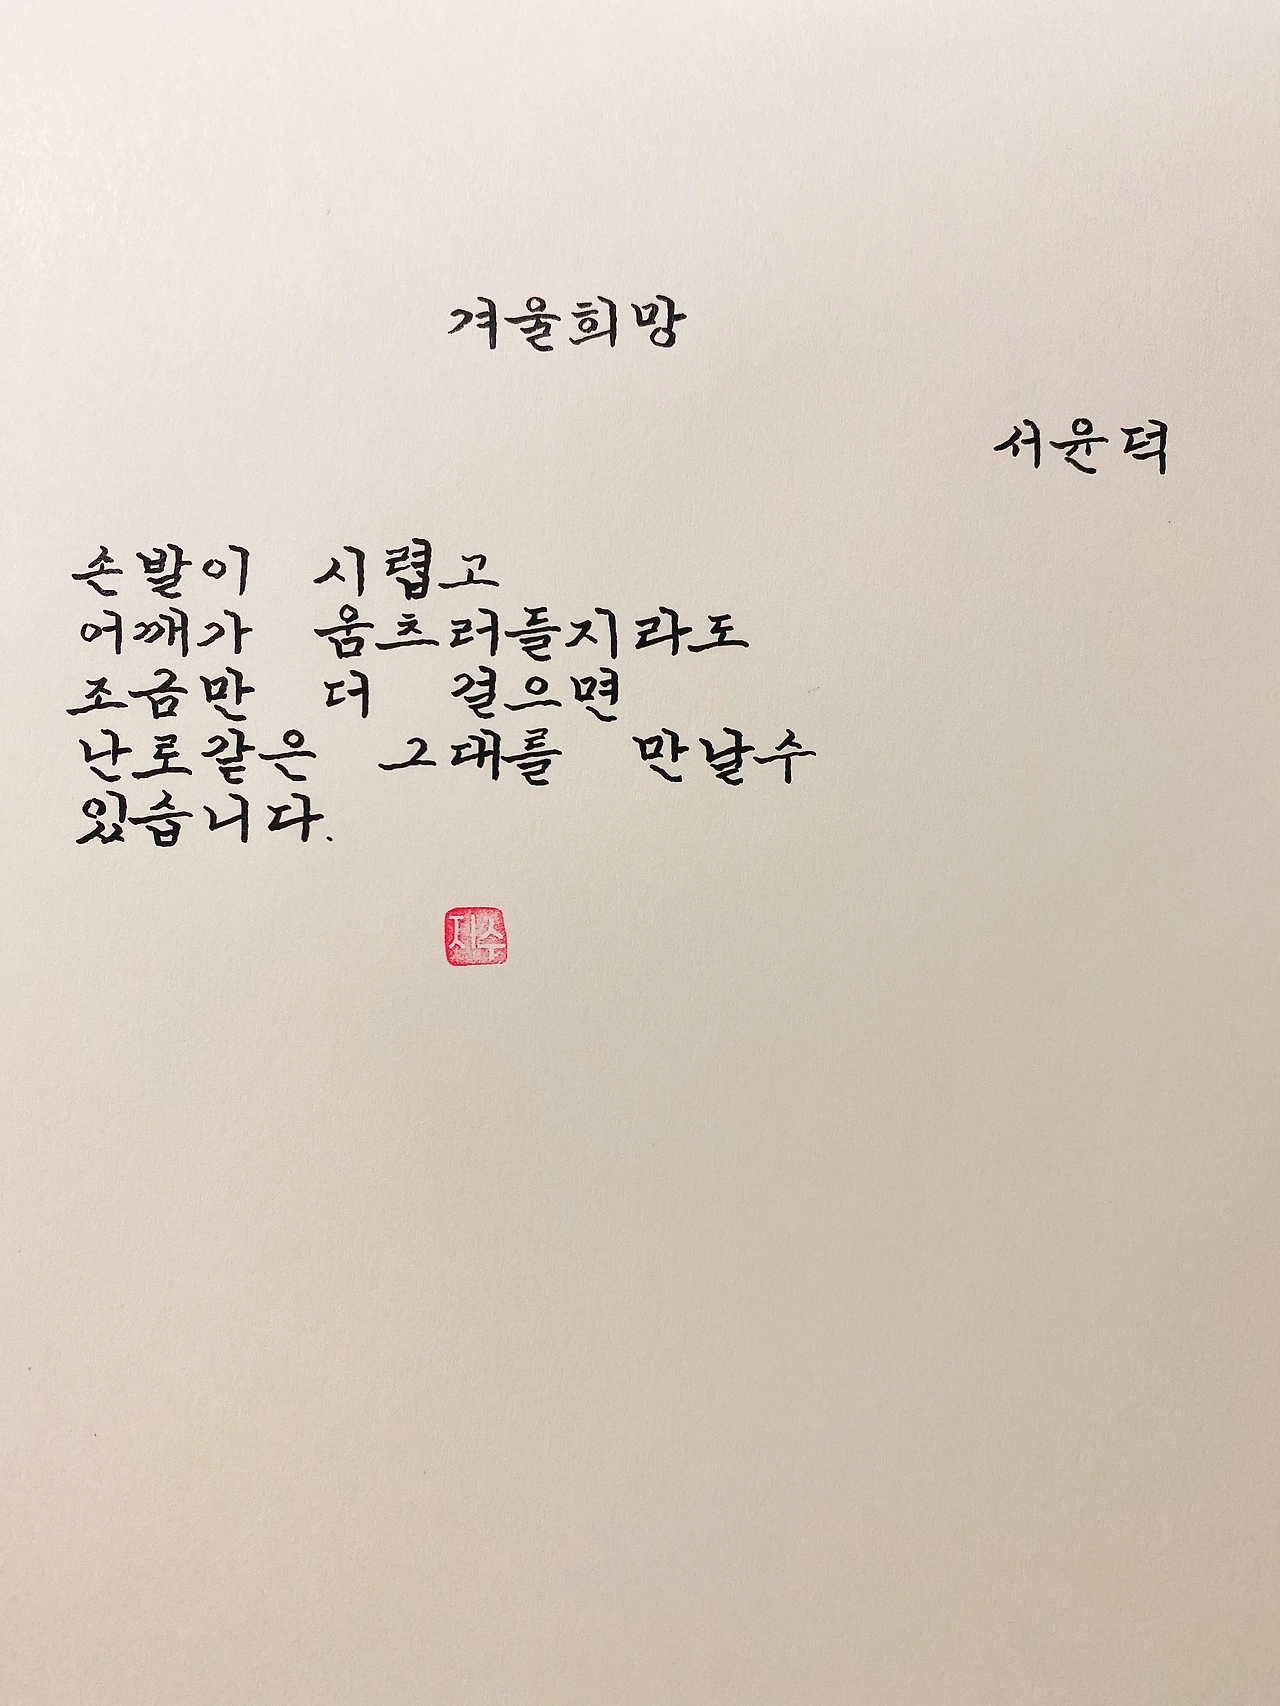 겨울희망
서윤덕
손발이 시렵고
어깨가 움츠러들지라도
조금만 더 걸으면
난로같은 그대를 만날수
있습니다.